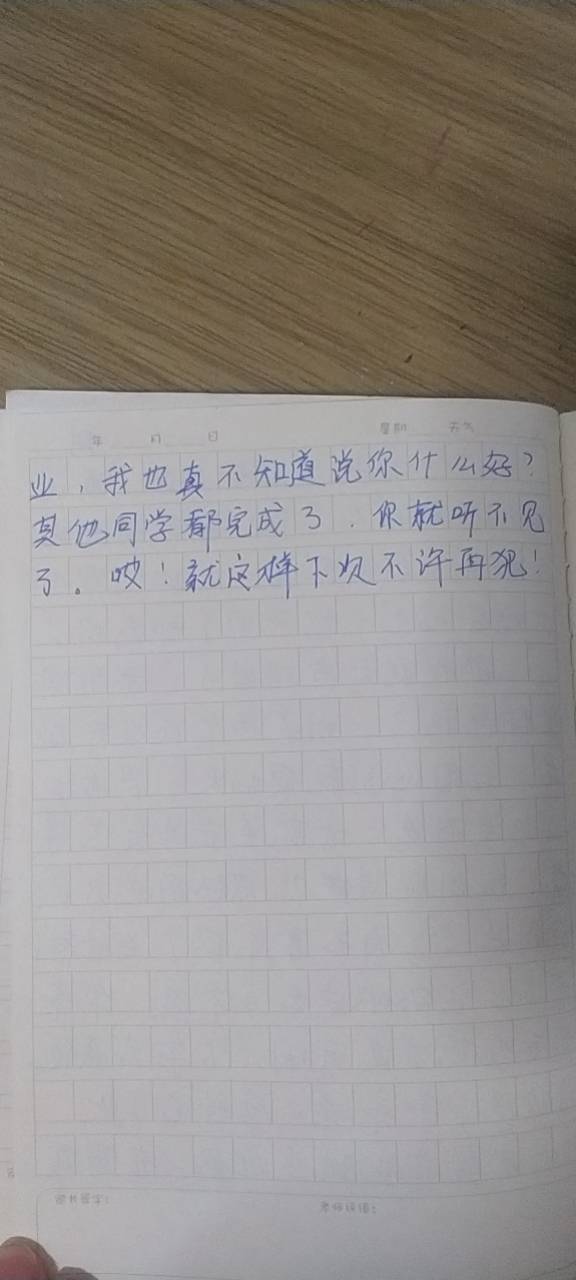 年 月 日 星期 天气
业，我也真不知道说你什么好？
其他同学都完成了．你就听不见
了。哎！就这样下次不许再犯！
家长签字： 老师评语：